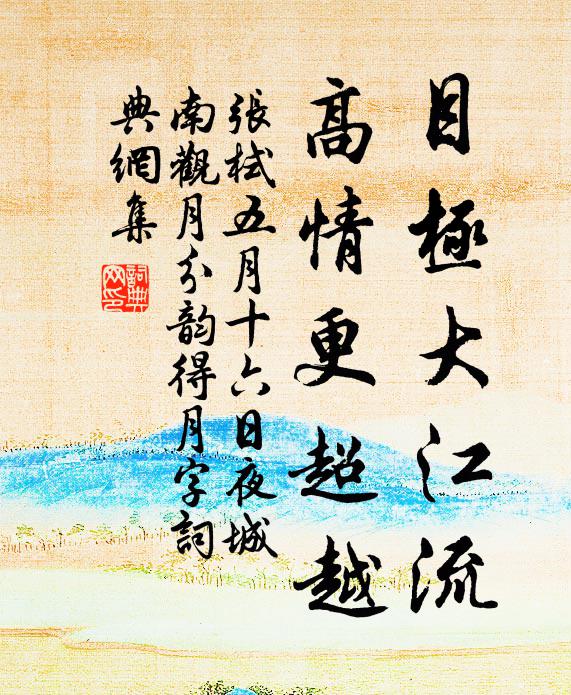 目極大江流
高情更超越
張栻五月十六日夜城
南觀月分韵得月字詞
典網集
詞典
网印